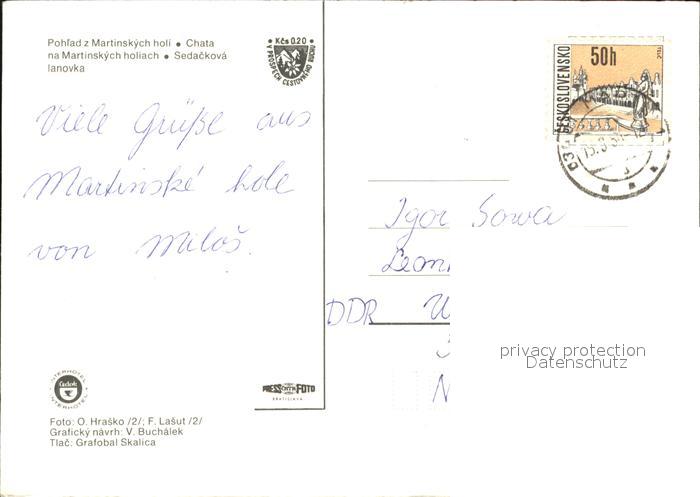 Pohľad z Martinských holí • Chata
na Martinských holiach • Sedačková
lanovka
• Kčs 0.20 •
V PROSPECH CESTOVNÉHO RUCHU
ČESKOSLOVENSKO
50h
Viele Grüße aus
Martinské hole
von Miloš.
Igor Sowa
DDR
privacy protection
Datenschutz
INTERHOTEL
čedok
INTERHOTEL
PRESSFOTO
BRATISLAVA
Foto: O. Hraško /2/; F. Lašut /2/
Grafický návrh: V. Buchálek
Tlač: Grafobal Skalica